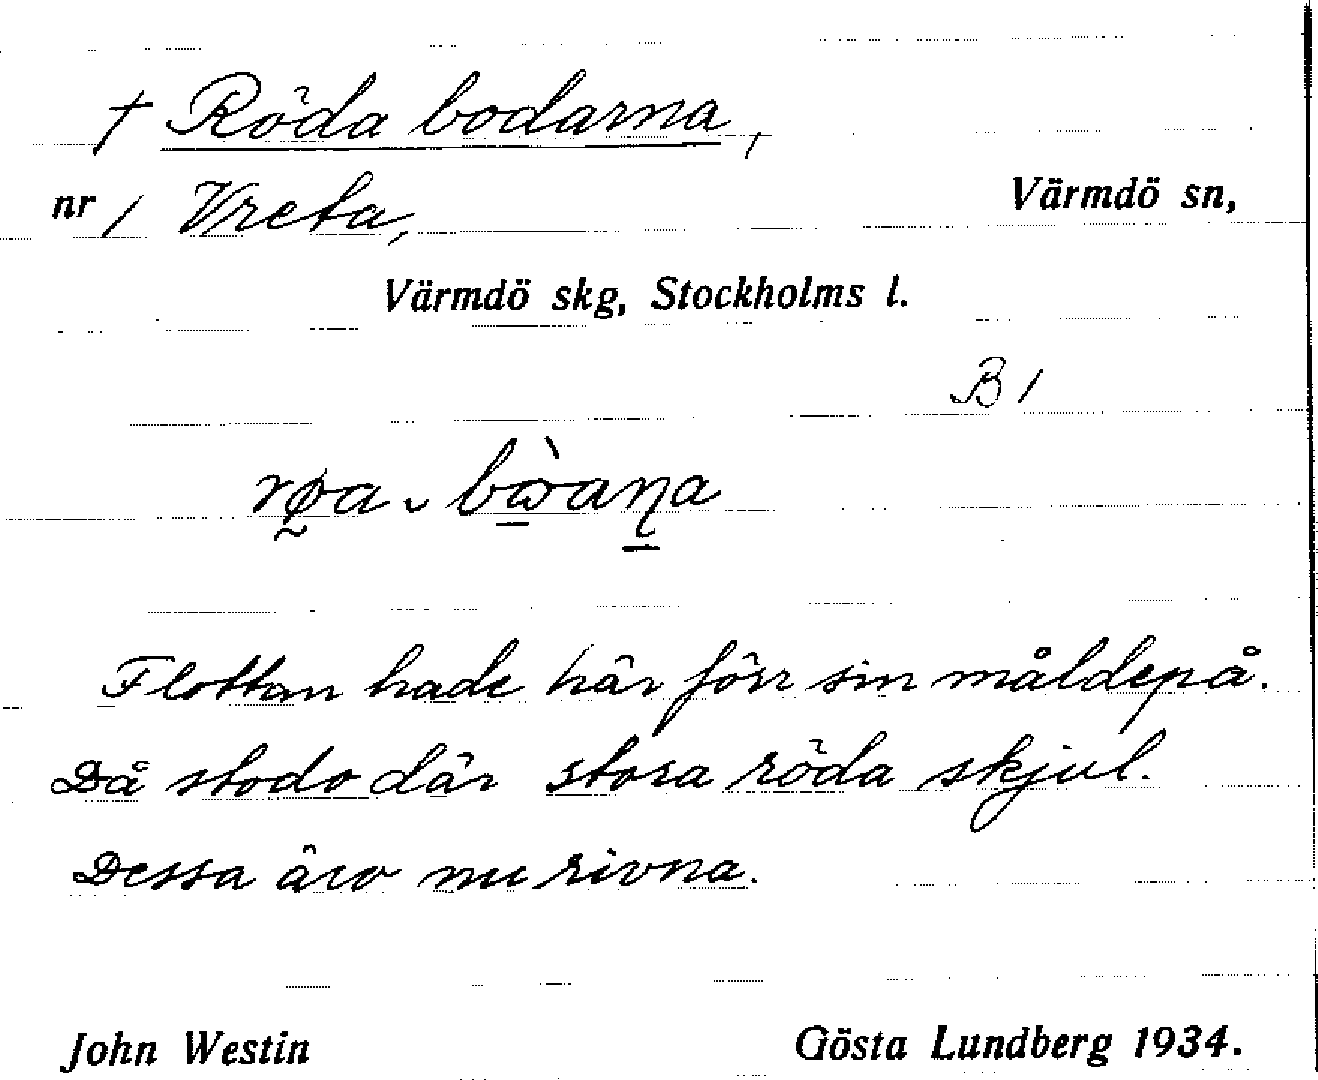 † Röda bodarna,
nr 1 Vreta, Värmdö sn,
Värmdö skg, Stockholms l.
B 1
Flottan hade här förr sin måldepå.
Då stodo där stora röda skjul.
Dessa äro nu rivna.
John Westin Gösta Lundberg 1934.